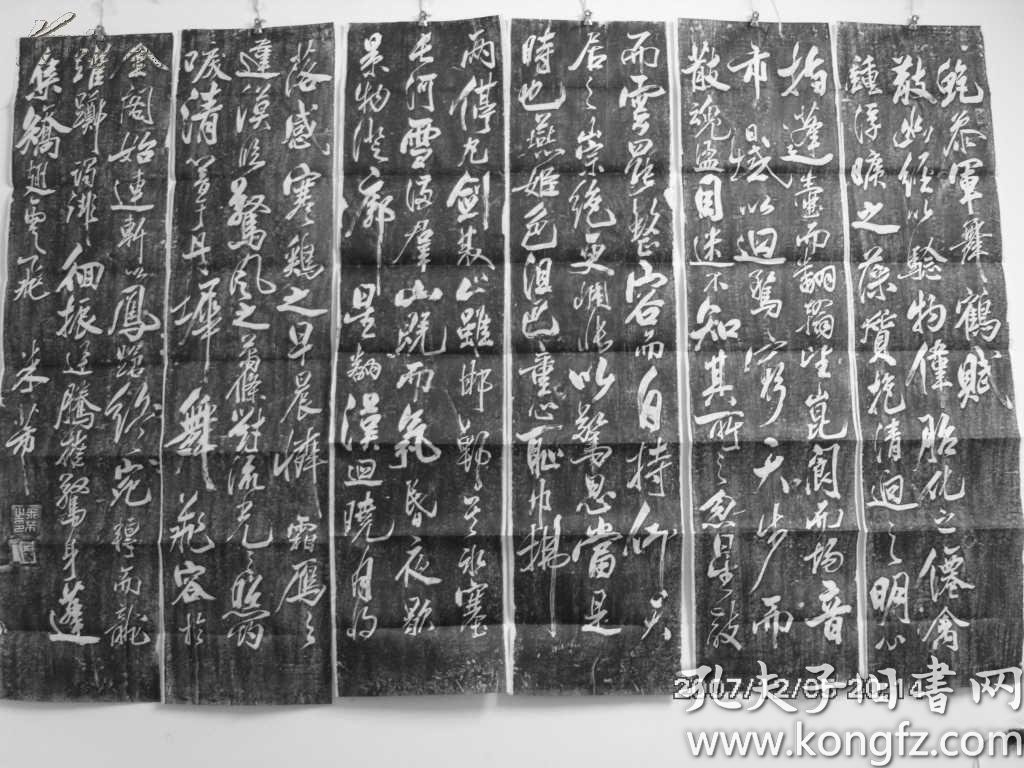 鮑參軍舞鶴賦
散幽經以驗物偉胎化之僊禽
鍾浮曠之藻質抱清迥之明心
指蓬壺而翻翰望崑閬而揚音
市日域以迴騖窮天步而
散魂盪目迷不知其所之忽星離
而雲罷整容而自持仰天
居之崇絕更惆悵以驚思當是
時也燕姬色沮巴童心恥巾拂
兩停丸劍雙止雖邯鄲其冰塞
長河雪滿群山既而氛昏夜歇
景物澄廓星翻漢迴曉月將
落感寒鷄之早晨憐霜鴈之
違漠臨驚風之蕭條對流光之照灼
唳清響于丹墀舞飛容於
金閣始連軒以鳳蹌終宛轉而龍
躍躑躅徘徊振迅騰摧驚身蓬
集矯翅雪飛 米芾
孔夫子旧书网
www.kongfz.com